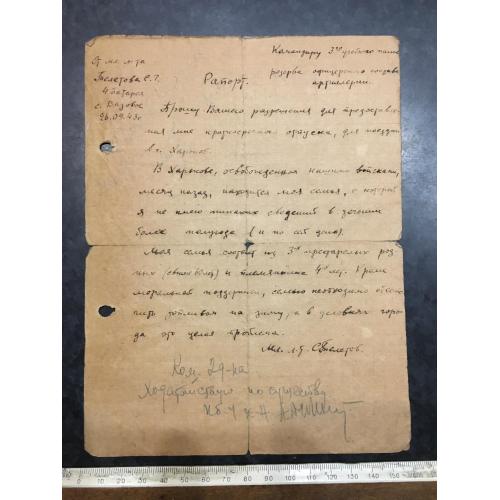 От мл. л-та
Телетова С.Г.
4 батарея
с. Вязовое
26.09.43г.
Командиру 3го учебного полка
резерва офицерского состава
артиллерии.
Рапорт.
Прошу Вашего разрешения для предоставле-
ния мне краткосрочного отпуска, для поездки
в г. Харьков.
В Харькове, освобожденном нашими войсками,
месяц назад, находится моя семья, о которой
я не имею никаких сведений в течении
более полугода (и по сей день).
Моя семья состоит из 3х престарелых род-
ных (свыше 60 лет) и племянника 4х лет. Кроме
моральной поддержки, семью необходимо обеспе-
чить топливом на зиму, а в условиях горо-
да это целая проблема.
Мл. л-т. СТелетов.
Ком. 2 д-на
Ходатайствую по существу
к-р 4
0 10 20 30 40 50 60 70 80 90 100 110 120 130 140 150